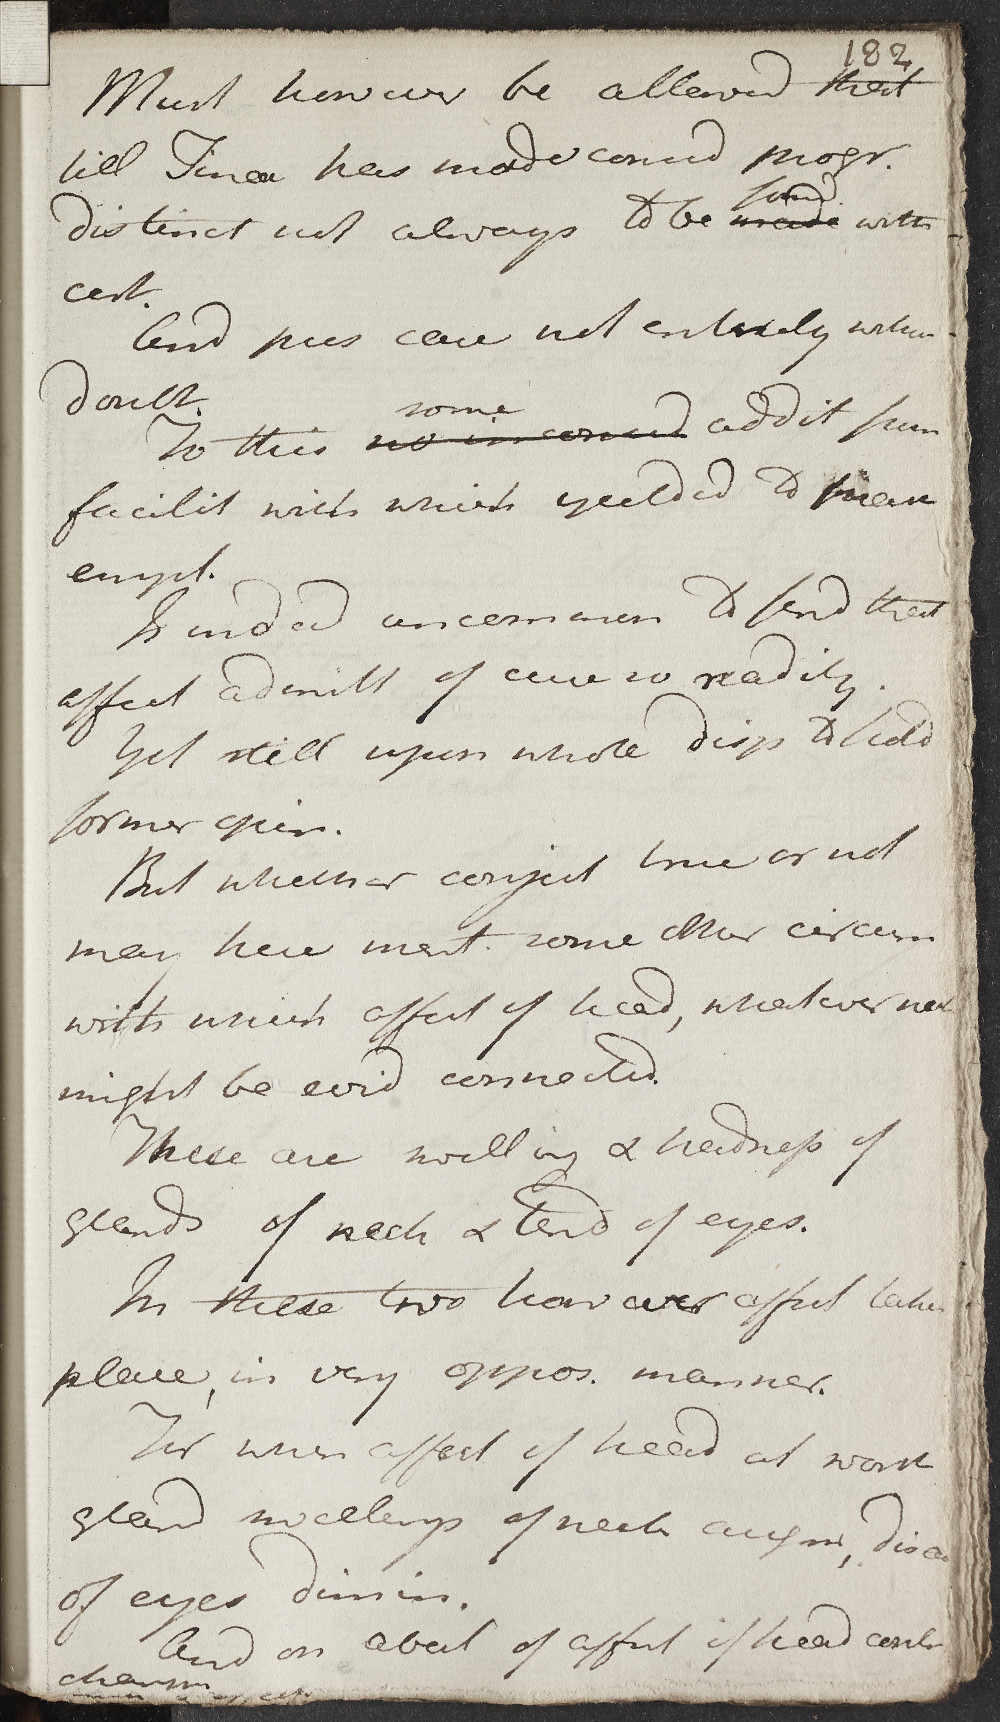 182
Must however be allowed that
till Tinea has made consid progr.
distinct not always to be made found with
cert.
And pres case not entirely withou
doubt.
To this no inconsid some addit from
facilit with which yielded to mean
empl.
Is indeed uncommon to find that
affect admitt of cure so readily.
Yet still upon whole disp to hold
former opin.
But whether conject true or not
may here ment. some other circum
with which affect of head, whatever nat
might be evid connected.
These are swelling & hardness of
glands of neck & tend of eyes.
In these two however affect takes
place, in very oppos. manner.
For when affect of head at worst
gland swellings of neck augm, disea
of eyes dimin.
And on abat of affect of head contr